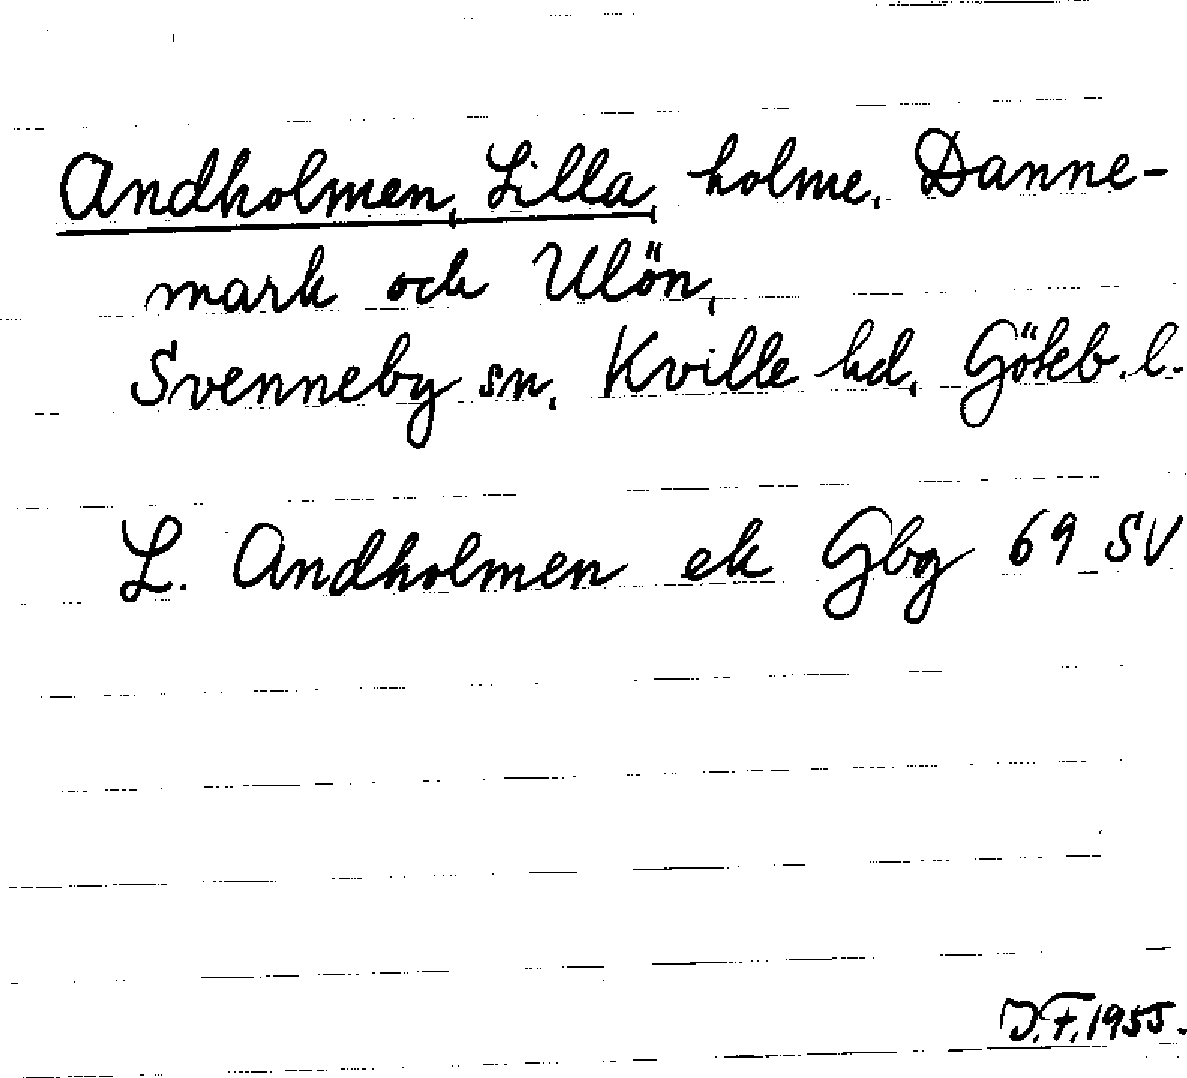 Andholmen, Lilla, holme, Danne-
mark och Ulön,
Svenneby sn, Kville hd, Göteb. l.
L. Andholmen ek Gbg 69 SV
J.F. 1955.